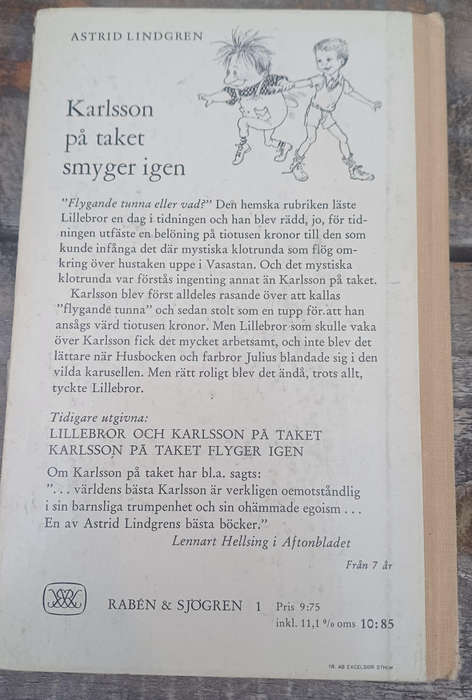 ASTRID LINDGREN
Karlsson
på taket
smyger igen
"Flygande tunna eller vad?" Den hemska rubriken läste
Lillebror en dag i tidningen och han blev rädd, jo, för tid-
ningen utfäste en belöning på tiotusen kronor till den som
kunde infånga det där mystiska klotrunda som flög om-
kring över hustaken uppe i Vasastan. Och det mystiska
klotrunda var förstås ingenting annat än Karlsson på taket.
Karlsson blev först alldeles rasande över att kallas
"flygande tunna" och sedan stolt som en tupp för att han
ansågs värd tiotusen kronor. Men Lillebror som skulle vaka
över Karlsson fick det mycket arbetsamt, och inte blev det
lättare när Husbocken och farbror Julius blandade sig i den
vilda karusellen. Men rätt roligt blev det ändå, trots allt,
tyckte Lillebror.
Tidigare utgivna:
LILLEBROR OCH KARLSSON PÅ TAKET
KARLSSON PÅ TAKET FLYGER IGEN
Om Karlsson på taket har bl.a. sagts:
". . . världens bästa Karlsson är verkligen oemotståndlig
i sin barnsliga trumpenhet och sin ohämmade egoism . . .
En av Astrid Lindgrens bästa böcker."
Lennart Hellsing i Aftonbladet
Från 7 år
RABÉN & SJÖGREN 1 Pris 9:75
inkl. 11,1 % oms 10:85
TR. AB EXCELSIOR STHLM